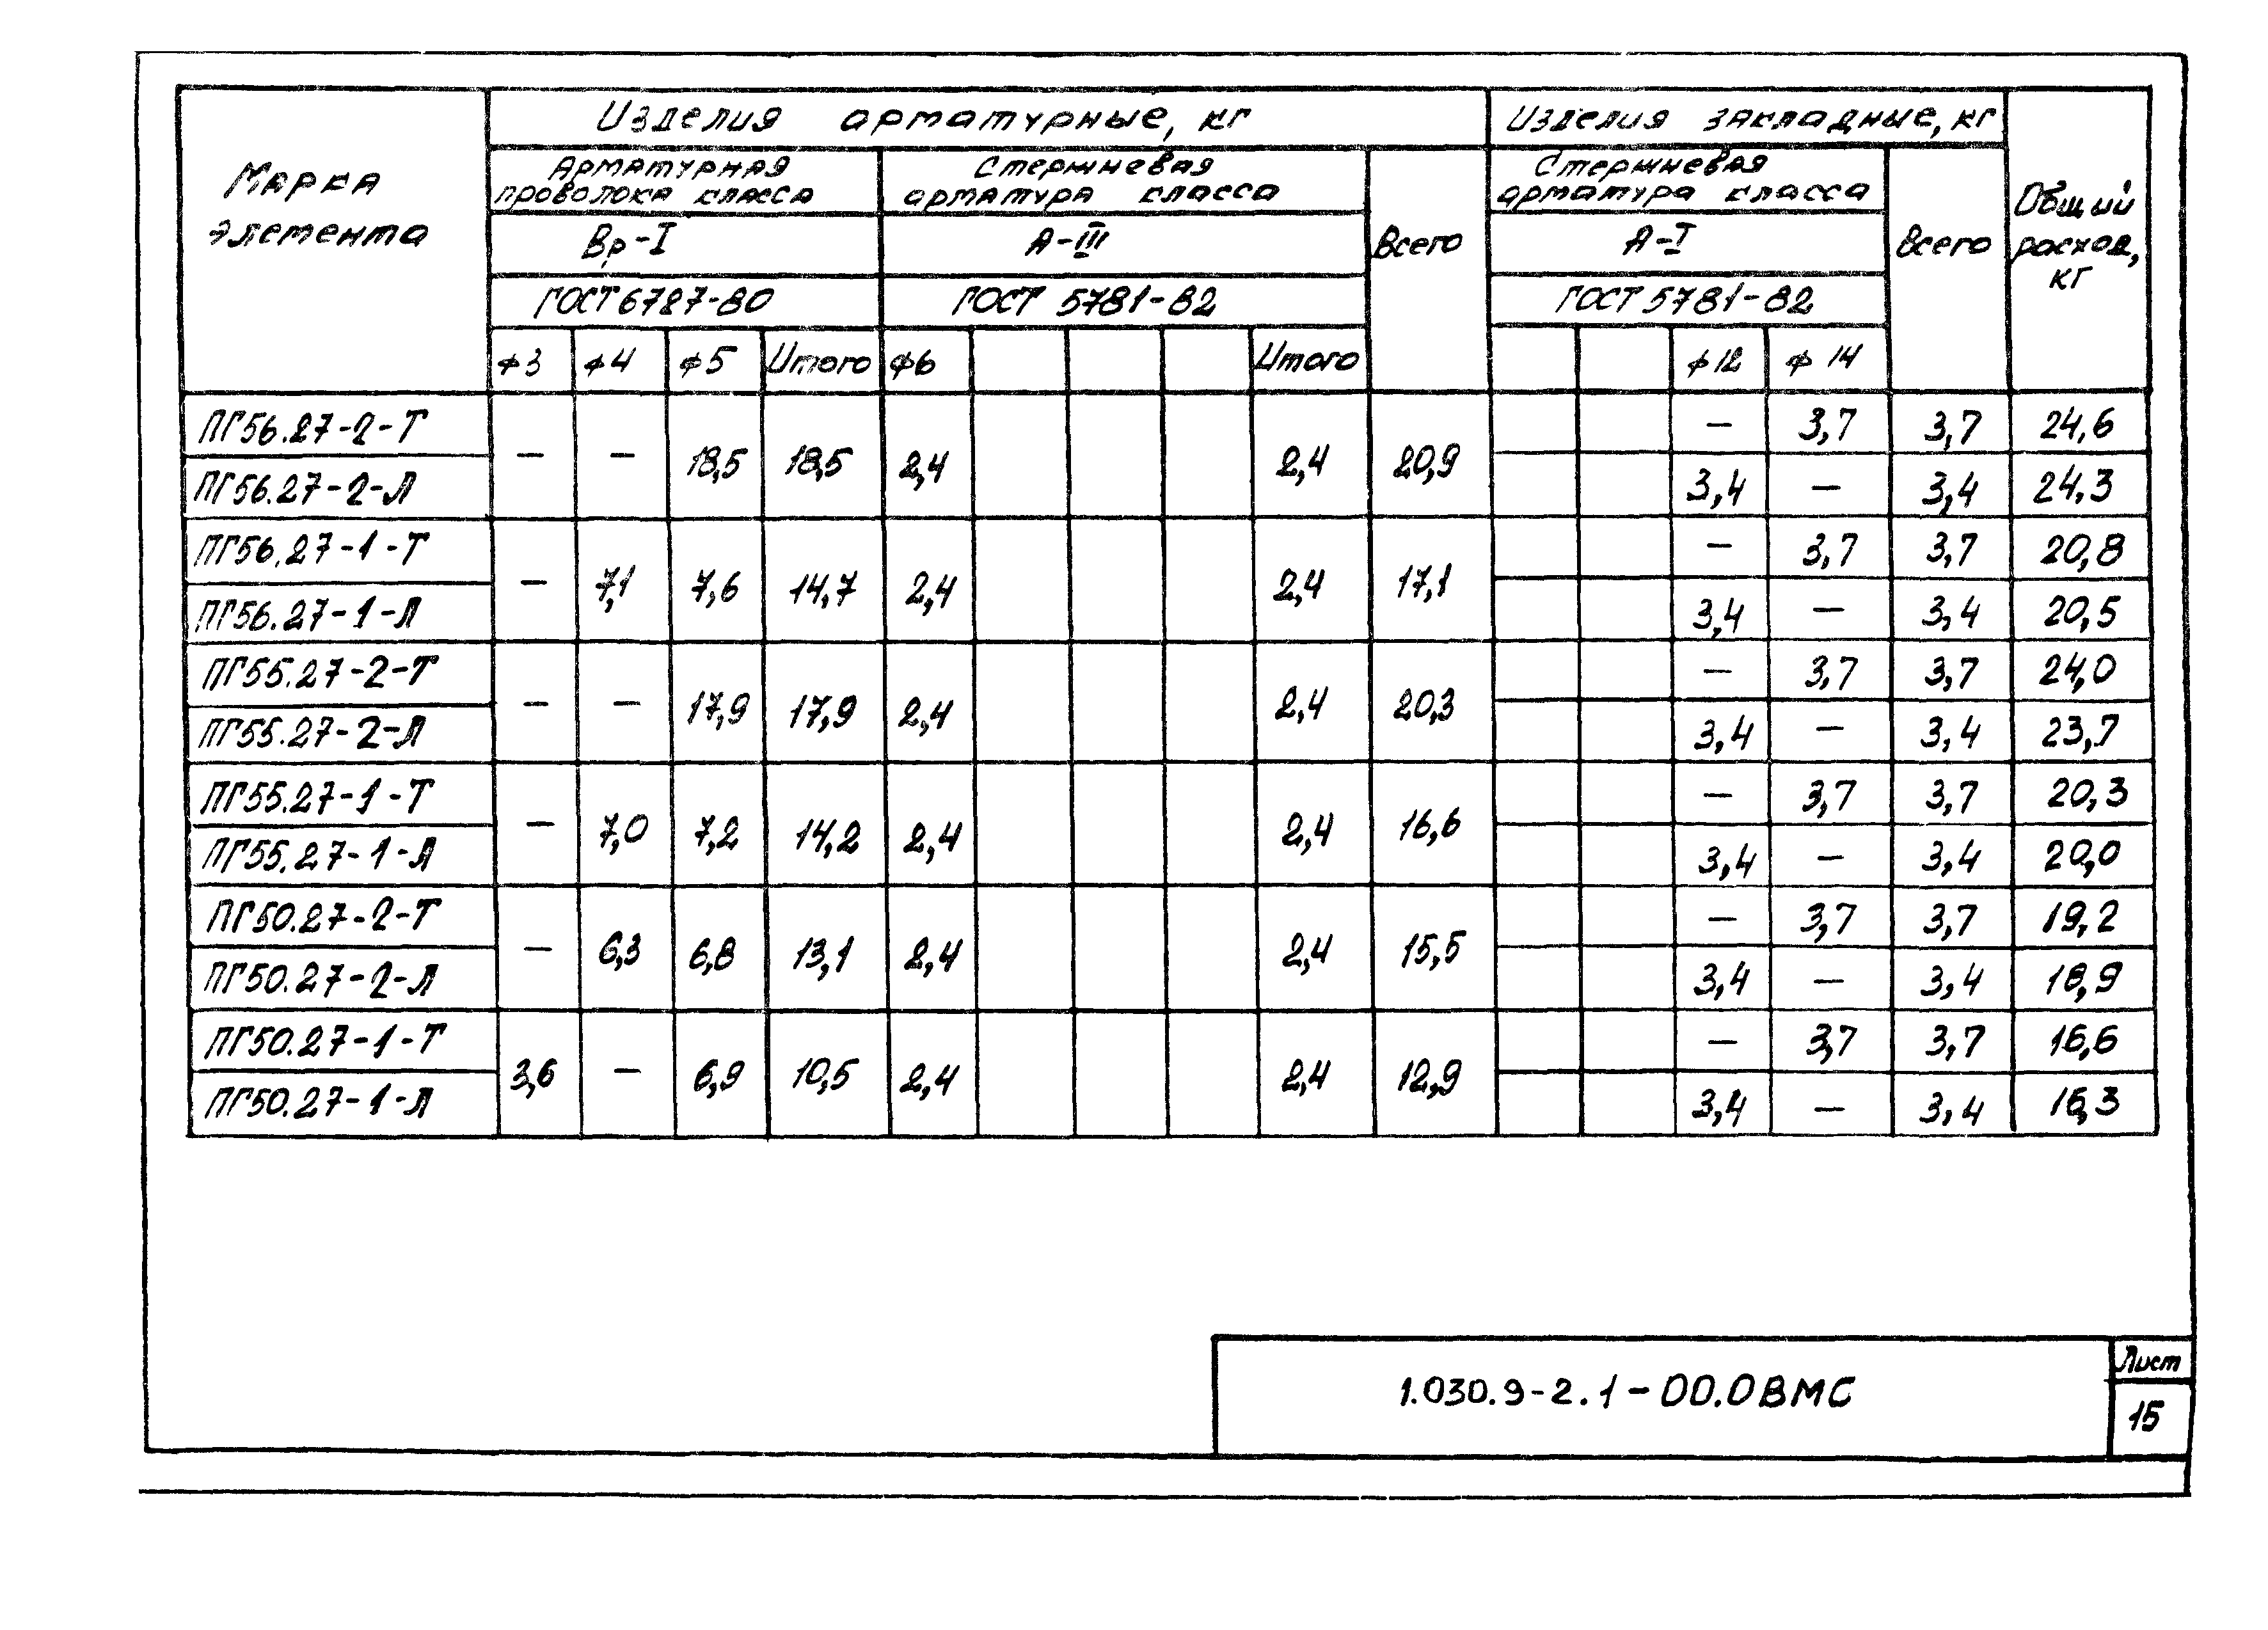 Марка элемента
Изделия арматурные, кг
Изделия закладные, кг
Общий расход, кг
Арматурная проволока класса
Стержневая арматура класса
Всего
Стержневая арматура класса
Всего
Вр-I
А-III
А-I
ГОСТ 6727-80
ГОСТ 5781-82
ГОСТ 5781-82
ф3 ф4 ф5 Итого ф6 Итого ф12 ф14
ПГ56.27-2-Т — — 18,5 18,5 2,4 2,4 20,9 — 3,7 3,7 24,6
ПГ56.27-2-Л 3,4 — 3,4 24,3
ПГ56.27-1-Т — 7,1 7,6 14,7 2,4 2,4 17,1 — 3,7 3,7 20,8
ПГ56.27-1-Л 3,4 — 3,4 20,5
ПГ55.27-2-Т — — 17,9 17,9 2,4 2,4 20,3 — 3,7 3,7 24,0
ПГ55.27-2-Л 3,4 — 3,4 23,7
ПГ55.27-1-Т — 7,0 7,2 14,2 2,4 2,4 16,6 — 3,7 3,7 20,3
ПГ55.27-1-Л 3,4 — 3,4 20,0
ПГ50.27-2-Т — 6,3 6,8 13,1 2,4 2,4 15,5 — 3,7 3,7 19,2
ПГ50.27-2-Л 3,4 — 3,4 18,9
ПГ50.27-1-Т 3,6 — 6,9 10,5 2,4 2,4 12,9 — 3,7 3,7 16,6
ПГ50.27-1-Л 3,4 — 3,4 16,3
1.030.9-2.1-00.0ВМС
Лист
15